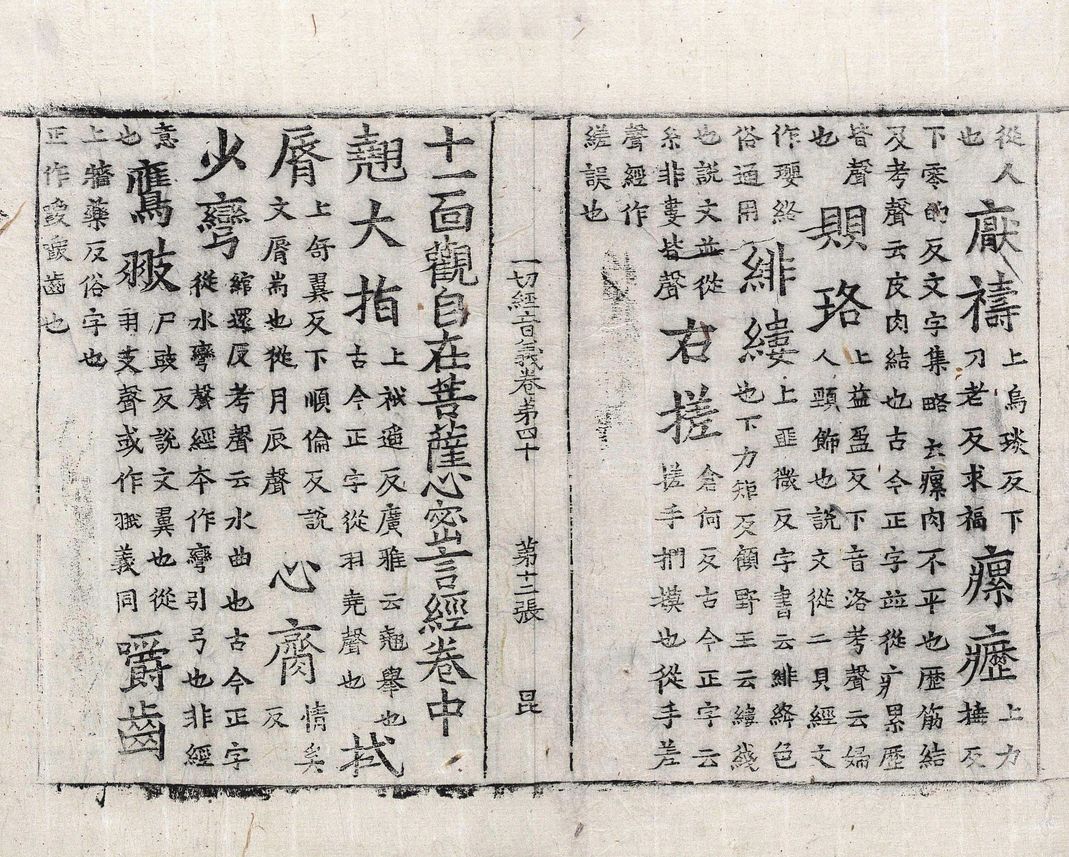 從人也厭禱上烏琰反下刀老反求福瘰癧上力捶反
下零的反文字集略云瘰肉不平也歷筋結
及考聲云皮肉結也古今正字並從疒累歷
皆聲也賏珞上益盈反下音洛考聲云婦人頸飾也說文從二貝經文
作瓔絡俗通用緋縷上匪微反字書云緋絳色也下力矩反顧野王云縷綫
也說文並從糸非婁皆聲右搓倉何反古今正字云搓手捫摸也從手差
聲經作
縒誤也
一切經音義卷第四十 第十二張 昆
十一面觀自在菩薩心密言經卷中
翹大指上祇遙反廣雅云翹舉也古今正字從羽堯聲也栻
脣上翼反下順倫反說文脣耑也從月辰聲心齊情奚反
少彎綰還反考聲云水曲也古今正字從水彎聲經本作彎引弓也非經
意也鷹翅尸豉反說文翼也從羽支聲或作翄義同嚼齒
上牆藥反俗字也
正作齒也